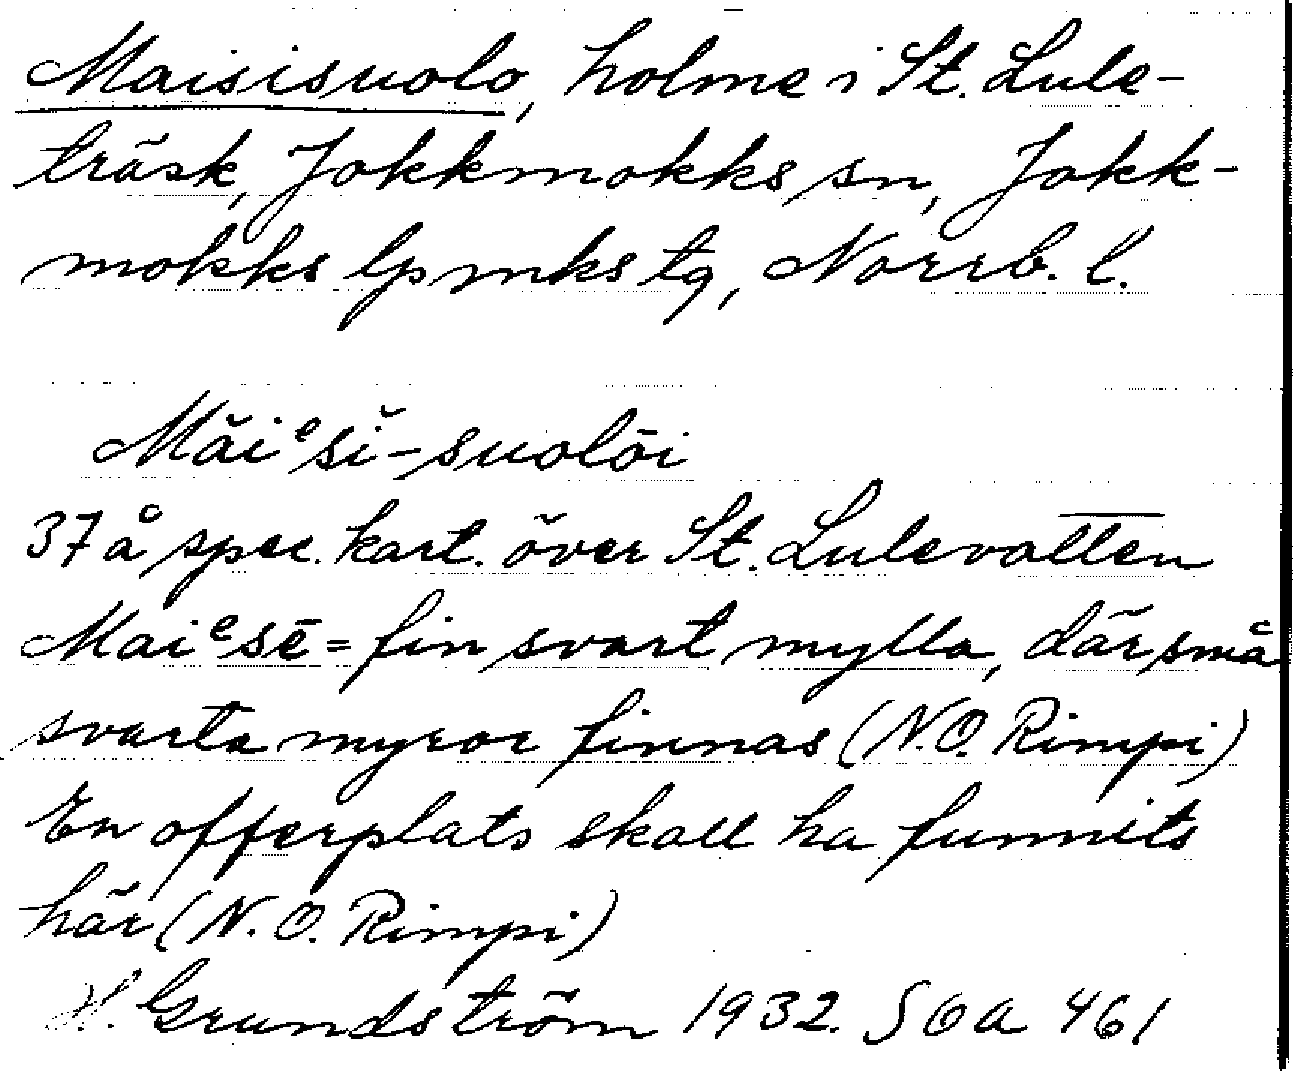 Maisisuolo, holme i St. Lule-
träsk, Jokkmokks sn, Jokk-
mokks lpmks tg, Norrb. l.
Măiᵉsĭ-suolōi
37 å spec. kart. över St. Lulevatten
Maiᵉsē = fin svart mylla, där små
svarta myror finnas (N.O. Rimpi)
En offerplats skall ha funnits
här (N. O. Rimpi)
H. Grundström 1932. SOA 461